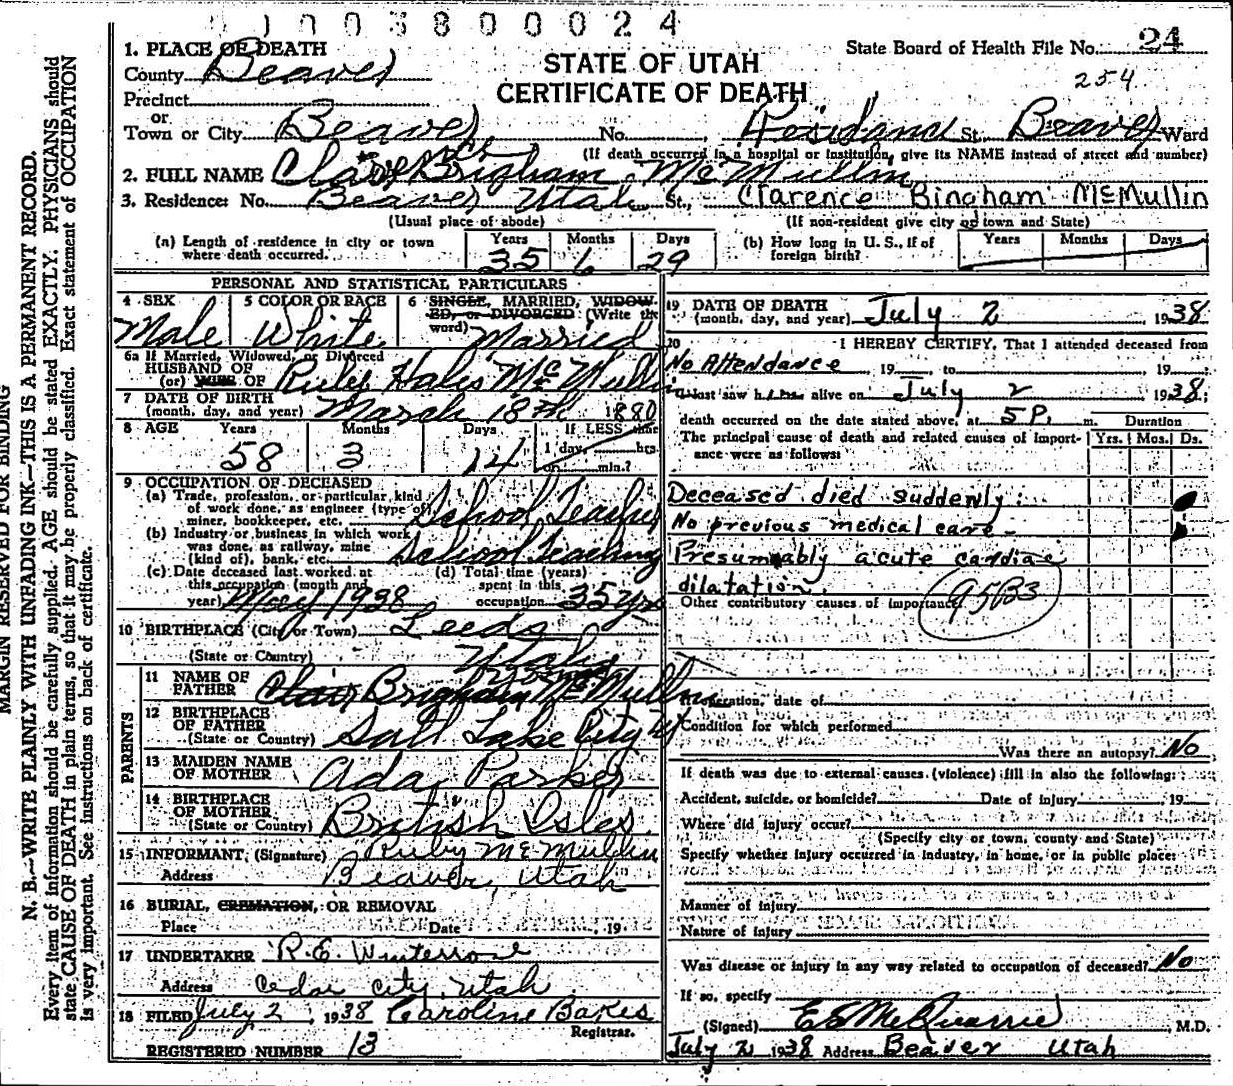 003800024
1. PLACE OF DEATH
County Beaver
STATE OF UTAH
CERTIFICATE OF DEATH
State Board of Health File No. 24
254
Precinct
or
Town or City Beaver No. Residence St. Beaver Ward
(If death occurred in a hospital or institution, give its NAME instead of street and number)
2. FULL NAME Brigham McMullin
3. Residence: No. Beaver Utah St., Clarence Bingham McMullin
(Usual place of abode) (If non-resident give city or town and State)
(a) Length of residence in city or town where death occurred. Years 35 Months 6 Days 29
(b) How long in U. S., if of foreign birth? Years Months Days
PERSONAL AND STATISTICAL PARTICULARS
4 SEX Male
5 COLOR OR RACE White
6 SINGLE, MARRIED, WIDOWED, or DIVORCED: (Write the word) Married
6a If Married, Widowed, or Divorced
HUSBAND OF
(or) WIFE OF Ruby Hales McMullin
7 DATE OF BIRTH
(month, day, and year) March 18th 1880
8 AGE Years 58 Months 3 Days 14 If LESS than 1 day, hrs. or min.?
9 OCCUPATION OF DECEASED
(a) Trade, profession, or particular kind of work done, as engineer (type of) miner, bookkeeper, etc. School Teacher
(b) Industry or business in which work was done, as railway, mine (kind of), bank, etc. School Teaching
(c) Date deceased last worked at this occupation (month and year) May 1938
(d) Total time (years) spent in this occupation 35 yrs
10 BIRTHPLACE (City or Town) Leeds
(State or Country) Utah
PARENTS
11 NAME OF FATHER Brigham McMullin
12 BIRTHPLACE OF FATHER
(State or Country) Salt Lake City Ut
13 MAIDEN NAME OF MOTHER Ada Parker
14 BIRTHPLACE OF MOTHER
(State or Country) British Isles
15 INFORMANT, (Signature) Ruby McMullin
Address Beaver, Utah
16 BURIAL, CREMATION, OR REMOVAL
Place Date , 19
17 UNDERTAKER R.E. Winterrose
Address Cedar City, Utah
18 FILED July 2 1938 Caroline Bakes
Registrar.
REGISTERED NUMBER 13
19 DATE OF DEATH
(month, day, and year) July 2, 1938
20 I HEREBY CERTIFY, That I attended deceased from
No Attendance, 19 , to , 19 ;
I last saw h alive on July 2 1938;
death occurred on the date stated above, at 5 P. m.
The principal cause of death and related causes of importance were as follows:
Duration
Yrs. Mos. Ds.
Deceased died suddenly:
No previous medical care.
Presumably acute cardiac
dilatation.
95B3
Other contributory causes of importance
If operation, date of
Condition for which performed
Was there an autopsy? No
If death was due to external causes (violence) fill in also the following:
Accident, suicide, or homicide? Date of injury , 19
Where did injury occur?
(Specify city or town, county and State)
Specify whether injury occurred in industry, in home, or in public place:
Manner of injury
Nature of injury
Was disease or injury in any way related to occupation of deceased? No
If so, specify
(Signed) E S McQuarrie, M.D.
July 2, 1938 Address Beaver Utah
MARGIN RESERVED FOR BINDING
N. B.—WRITE PLAINLY WITH UNFADING INK—THIS IS A PERMANENT RECORD.
Every item of information should be carefully supplied. AGE should be stated EXACTLY. PHYSICIANS should
state CAUSE OF DEATH in plain terms, so that it may be properly classified. Exact statement of OCCUPATION
is very important. See instructions on back of certificate.